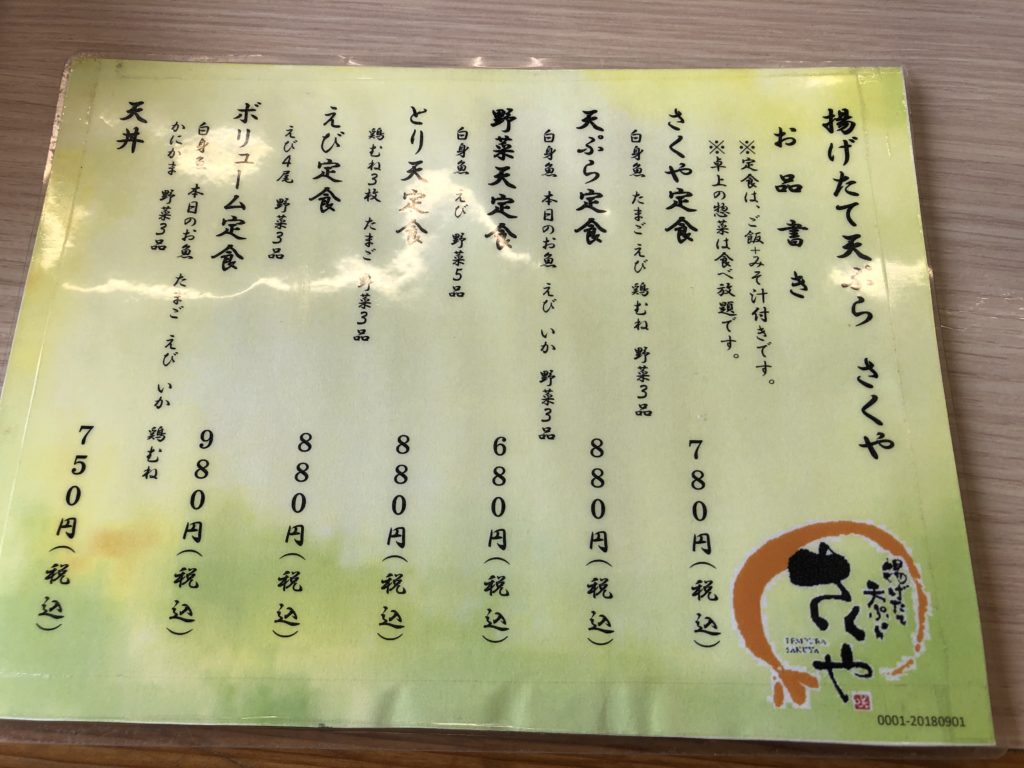 揚げたて天ぷら さくや
お品書き
※定食は、ご飯+みそ汁付きです。
※卓上の惣菜は食べ放題です。
さくや定食 780円(税込)
白身魚 たまご えび 鶏むね 野菜3品
天ぷら定食 880円(税込)
白身魚 本日のお魚 えび いか 野菜3品
野菜天定食 680円(税込)
白身魚 えび 野菜5品
とり天定食 880円(税込)
鶏むね3枚 たまご 野菜3品
えび定食 880円(税込)
えび4尾 野菜3品
ボリューム定食 980円(税込)
白身魚 本日のお魚 たまご えび いか 鶏むね
かにかま 野菜3品
天丼 750円(税込)
揚げたて
天ぷら
さくや
TEMPURA
SAKUYA
咲
0001-20180901